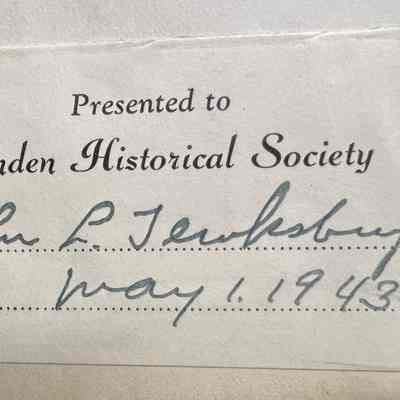 Presented to
nden Historical Society
hn L. Tewksbury
May 1. 1943